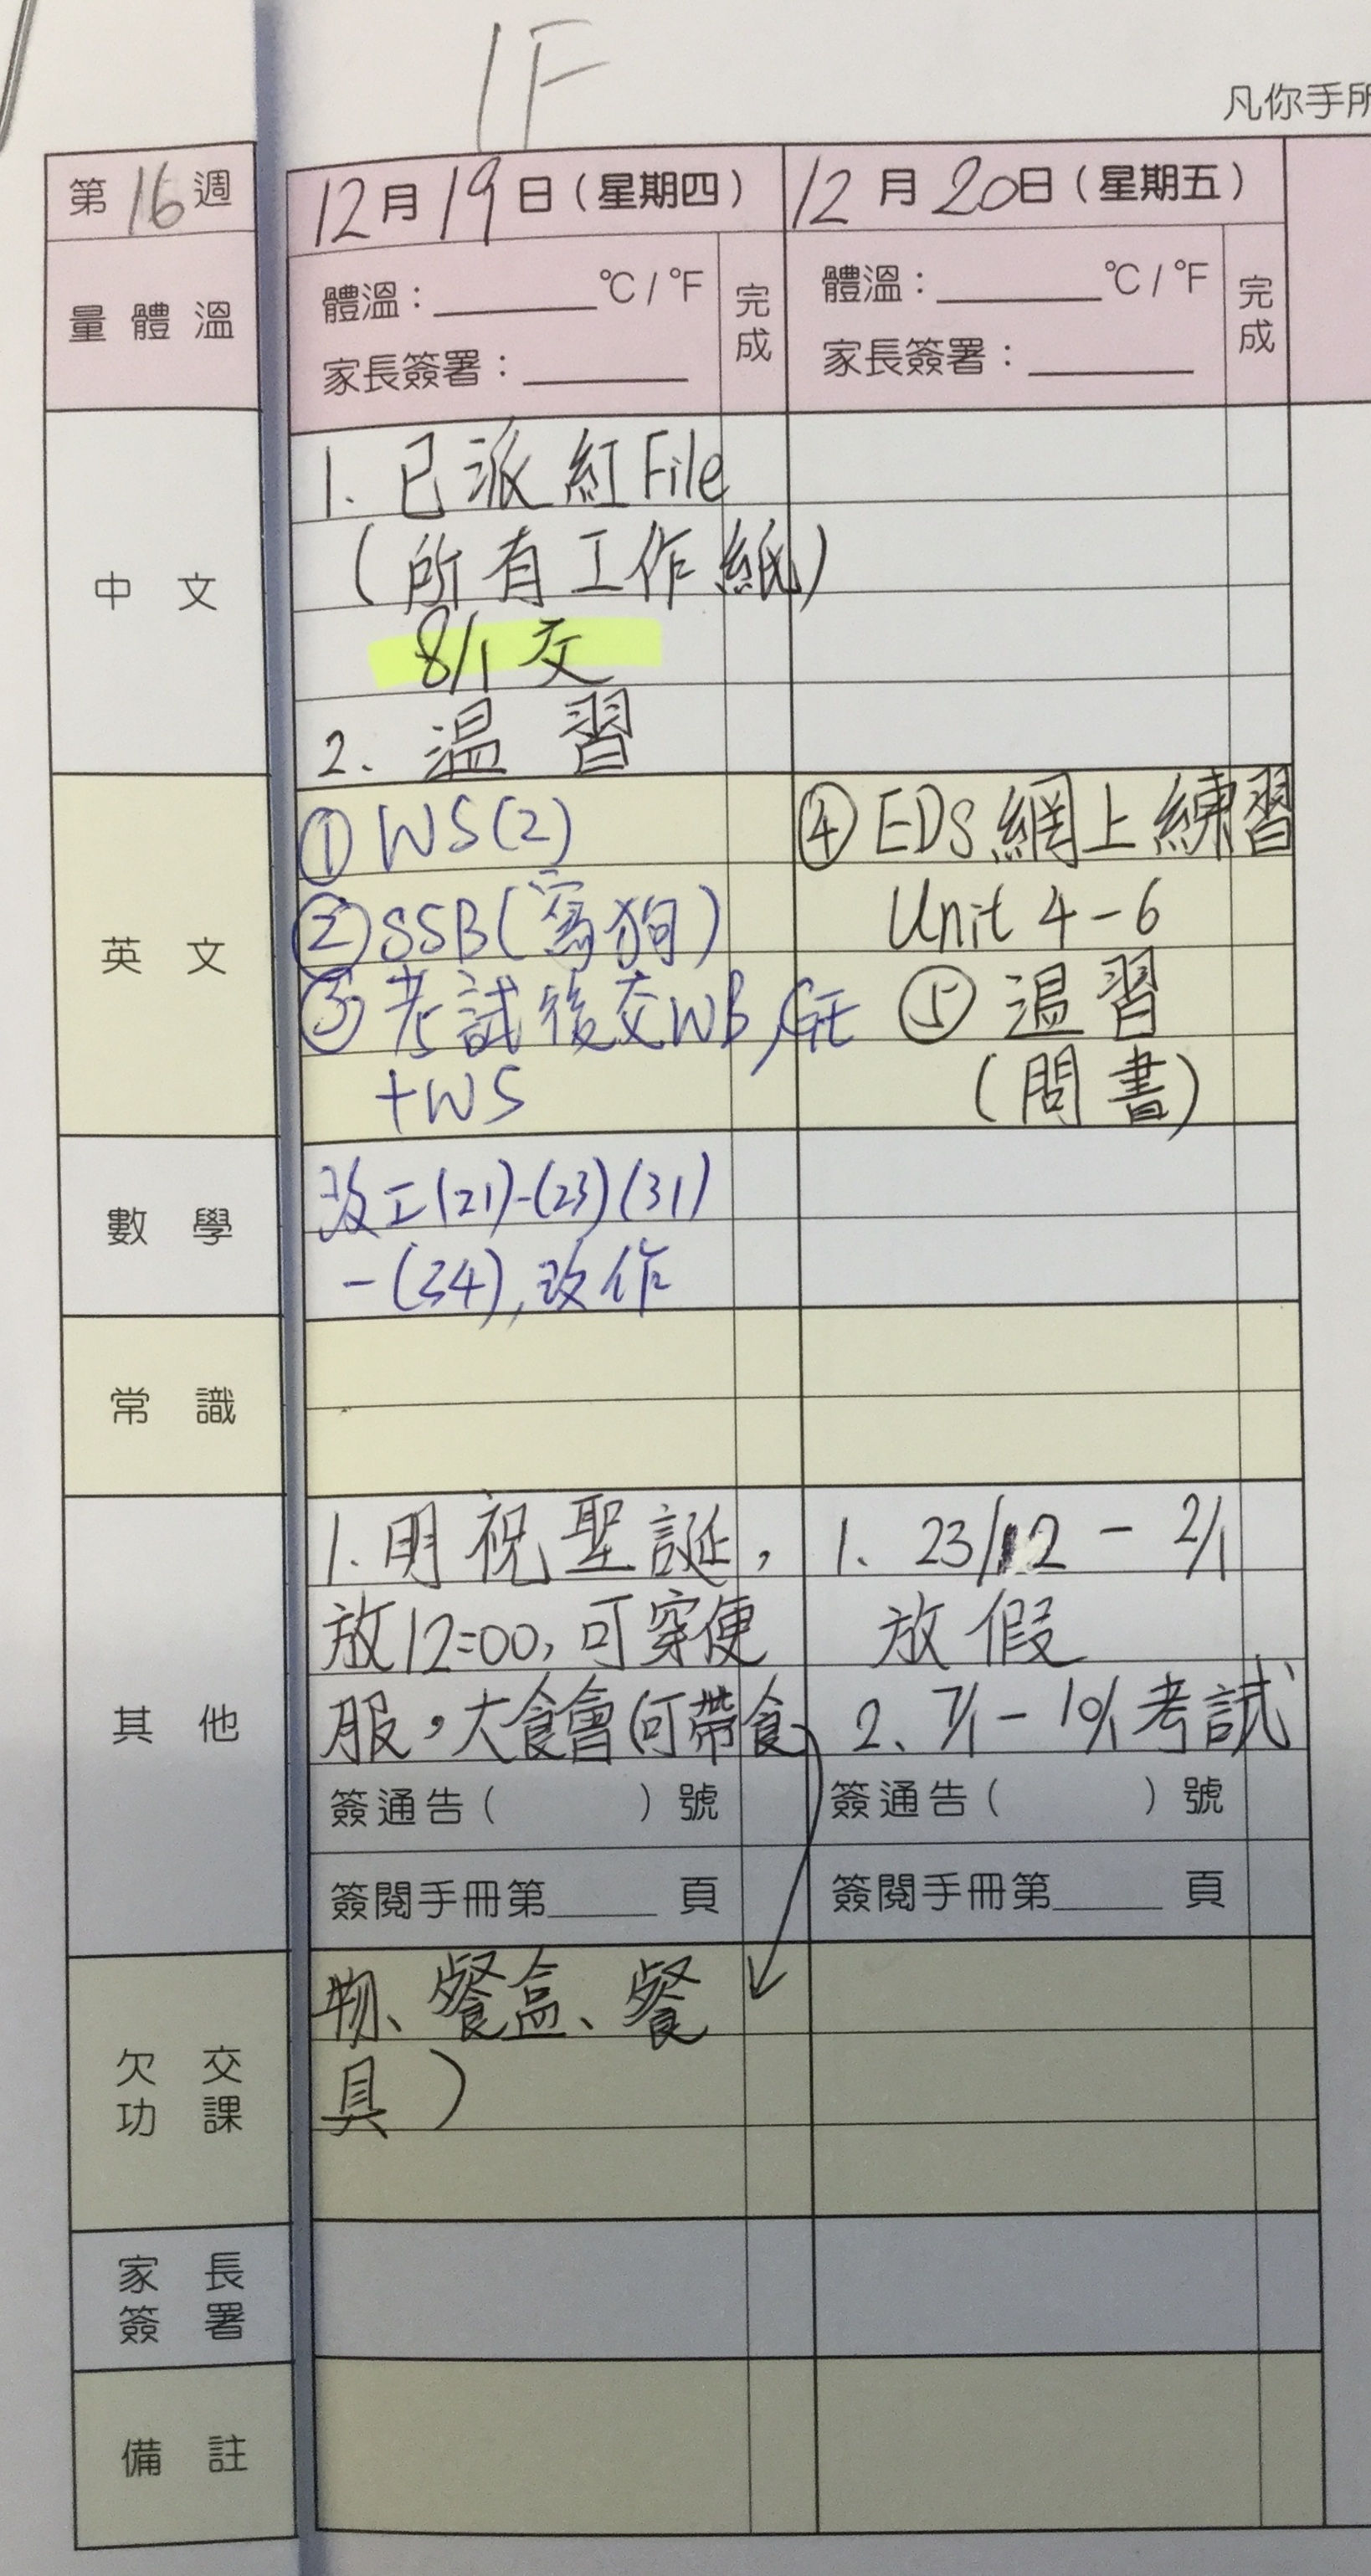 1F
凡你手所
第16週
12月19日（星期四）
12月20日（星期五）
量體溫
體溫：______°C / °F
家長簽署：______
完成
體溫：______°C / °F
家長簽署：______
完成
中文
1. 已派紅File
(所有工作紙)
8/1 交
2. 温習
英文
① WS(2)
② SSB(寫狗)
③ 考試後交WB, GE
+WS
④ EDS網上練習
Unit 4-6
⑤ 温習
(問書)
數學
改工(21)-(23)(31)
-(34), 改作
常識
其他
1. 明祝聖誕，
放12:00，可穿便
服，大食會(可帶食
1. 23/12 - 2/1
放假
2. 7/1 - 10/1 考試
簽通告（　　　）號
簽閱手冊第_____頁
簽通告（　　　）號
簽閱手冊第_____頁
欠交功課
物、餐盒、餐
具)
家長簽署
備註